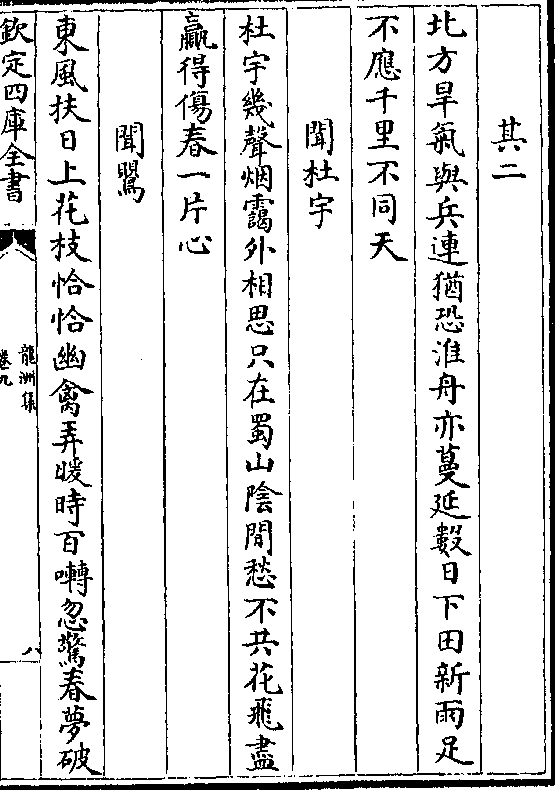 其二
北方旱氣與兵連猶恐淮舟亦蔓延數日下田新雨足
不應千里不同天
聞杜宇
杜宇幾聲烟靄外相思只在蜀山陰閒愁不共花飛盡
贏得傷春一片心
聞鸎
東風扶日上花枝恰恰幽禽弄暖時百囀忽驚春夢破
欽定四庫全書
龍洲集
卷九
八